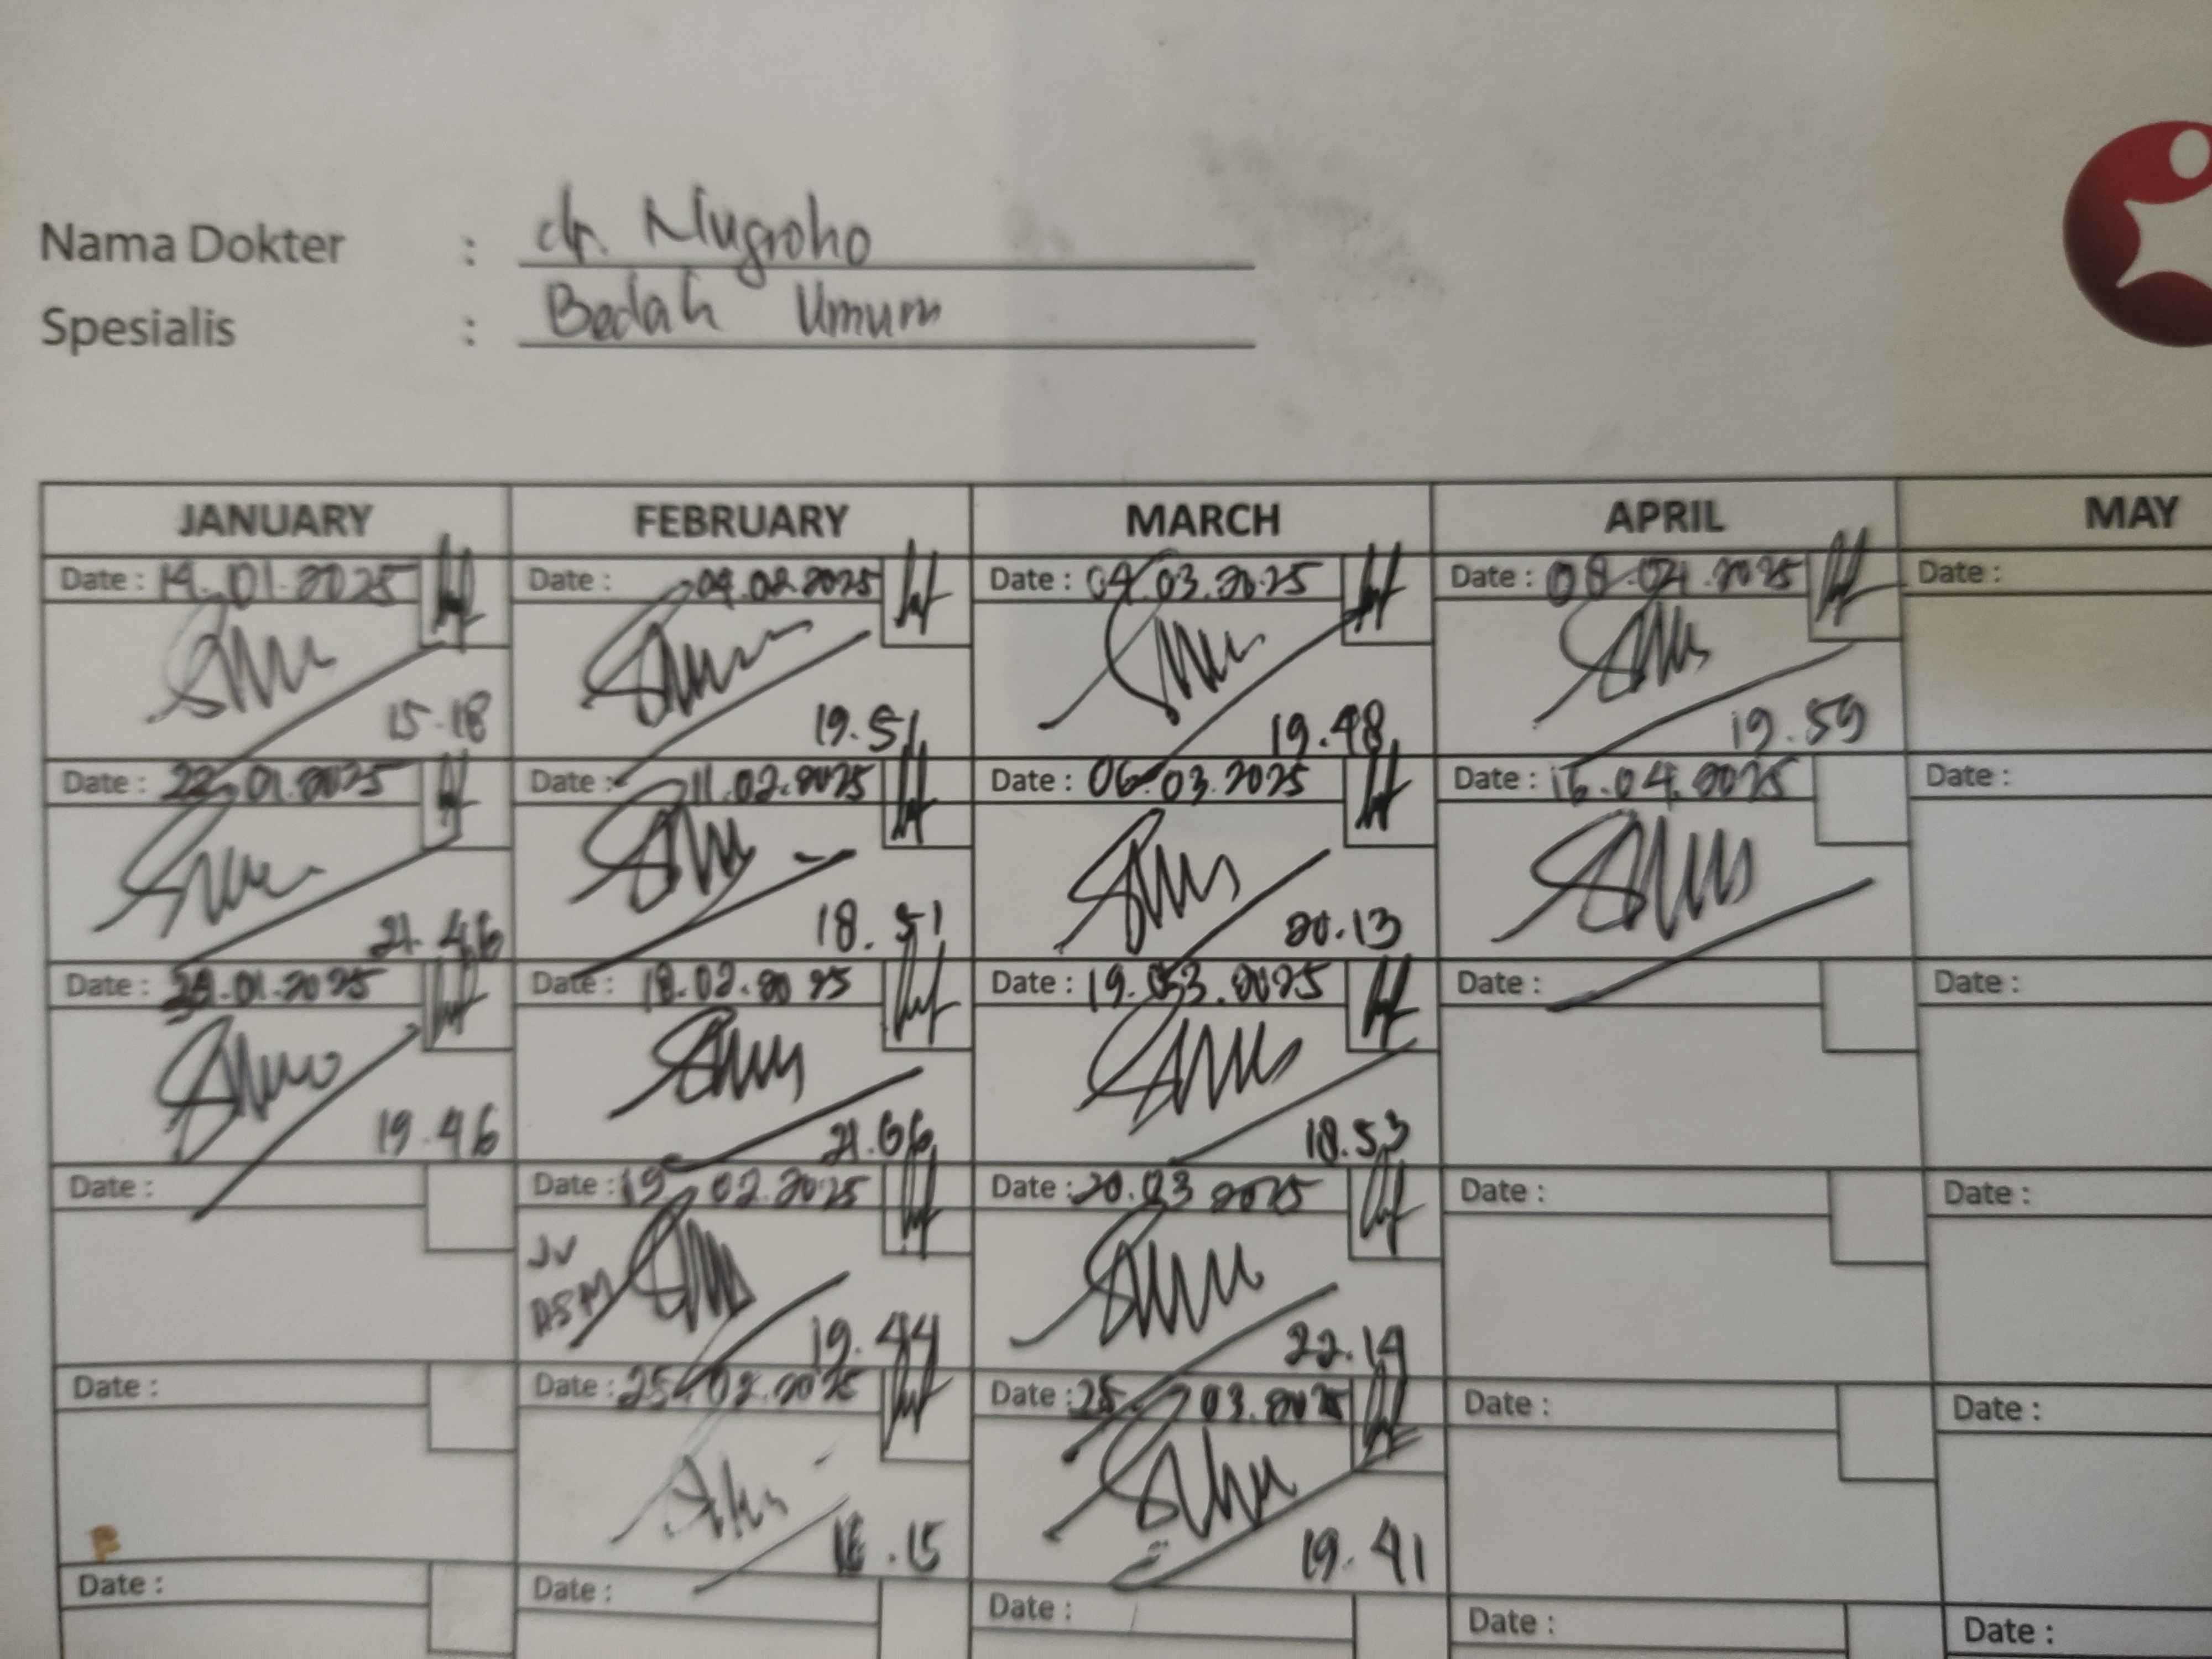 Nama Dokter : dr. Nugroho
Spesialis : Bedah Umum
JANUARY FEBRUARY MARCH APRIL MAY
Date : 14.01.2025 Date : 04.02.2025 Date : 04.03.2025 Date : 08.04.2025 Date :
15.18 19.51 19.48 19.59
Date : 22.01.2025 Date : 11.02.2025 Date : 06.03.2025 Date : 16.04.2025 Date :
21.46 18.51 20.13
Date : .01.2025 Date : 18.02.2025 Date : 19.03.2025 Date : Date :
19.46 21.06 18.53
Date : Date : 19 02.2025 Date : 20.03 2025 Date : Date :
JV
ASM
19.44 22.14
Date : Date : 25.02.2025 Date : 25 03.2025 Date : Date :
.15 19.41
Date : Date : Date : Date : Date :